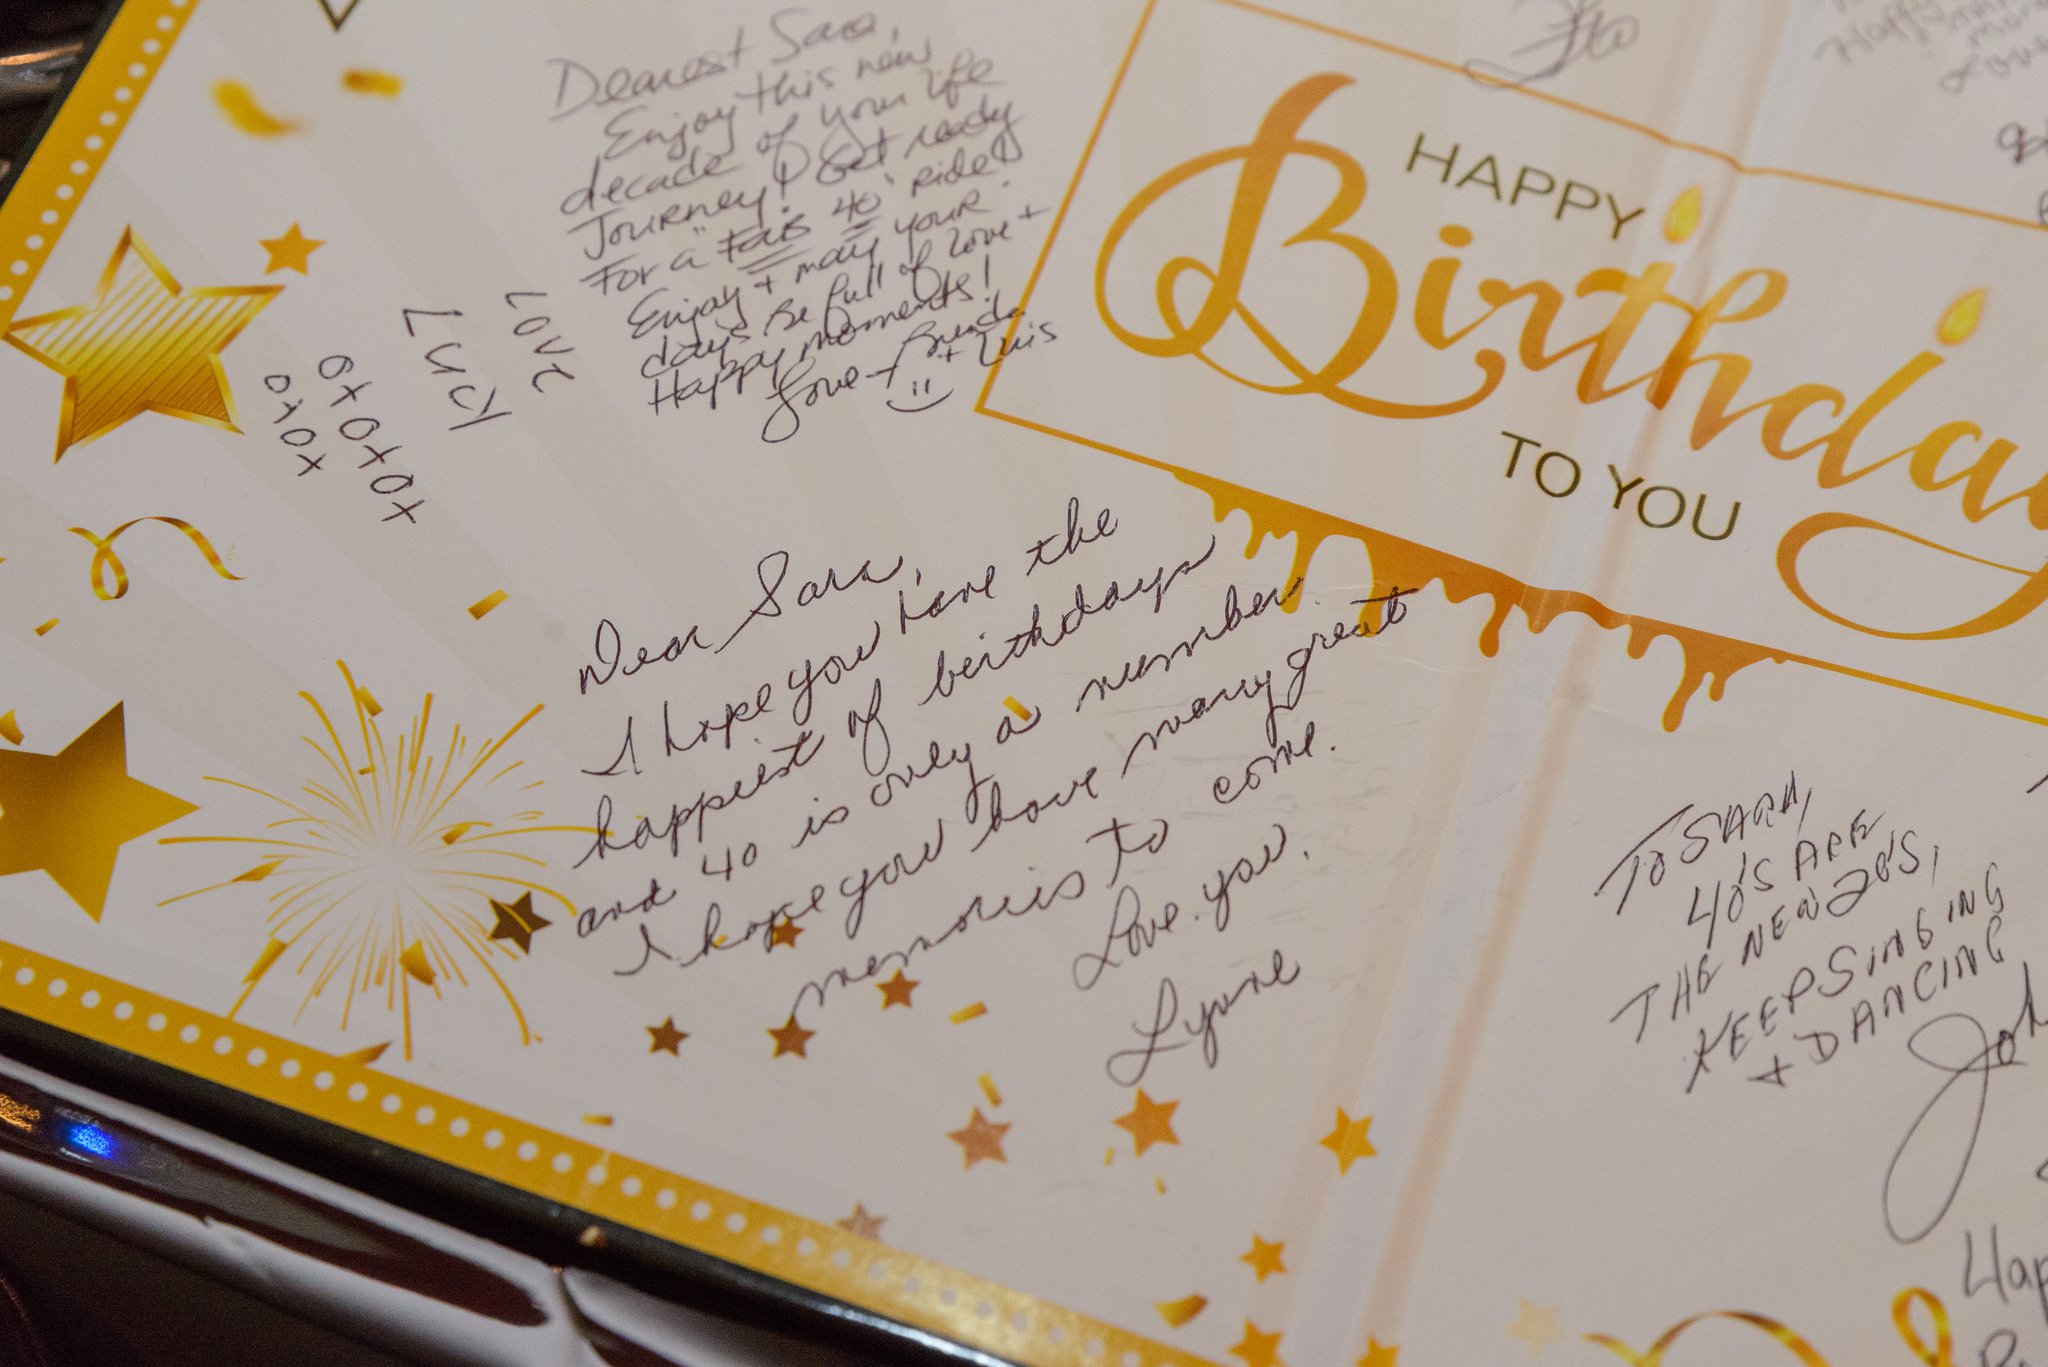 Dearest Sara,
Enjoy this new
decade of your life
Journey! Get ready
For a "Fab 40" ride!
Enjoy + may your
days be full of love +
Happy moments!
Love -
+ Luis
HAPPY
Birthday
TO YOU
Happy
LOVE
XOXOXO
XOXO
Dear Sara,
I hope you have the
happiest of birthdays
and 40 is only a number.
I hope you have many great
memories to come.
Love you,
Lynne
TO SARA,
40'S ARE
THE NEW 20'S,
KEEP SINGING
+ DANCING
Joh
Hap